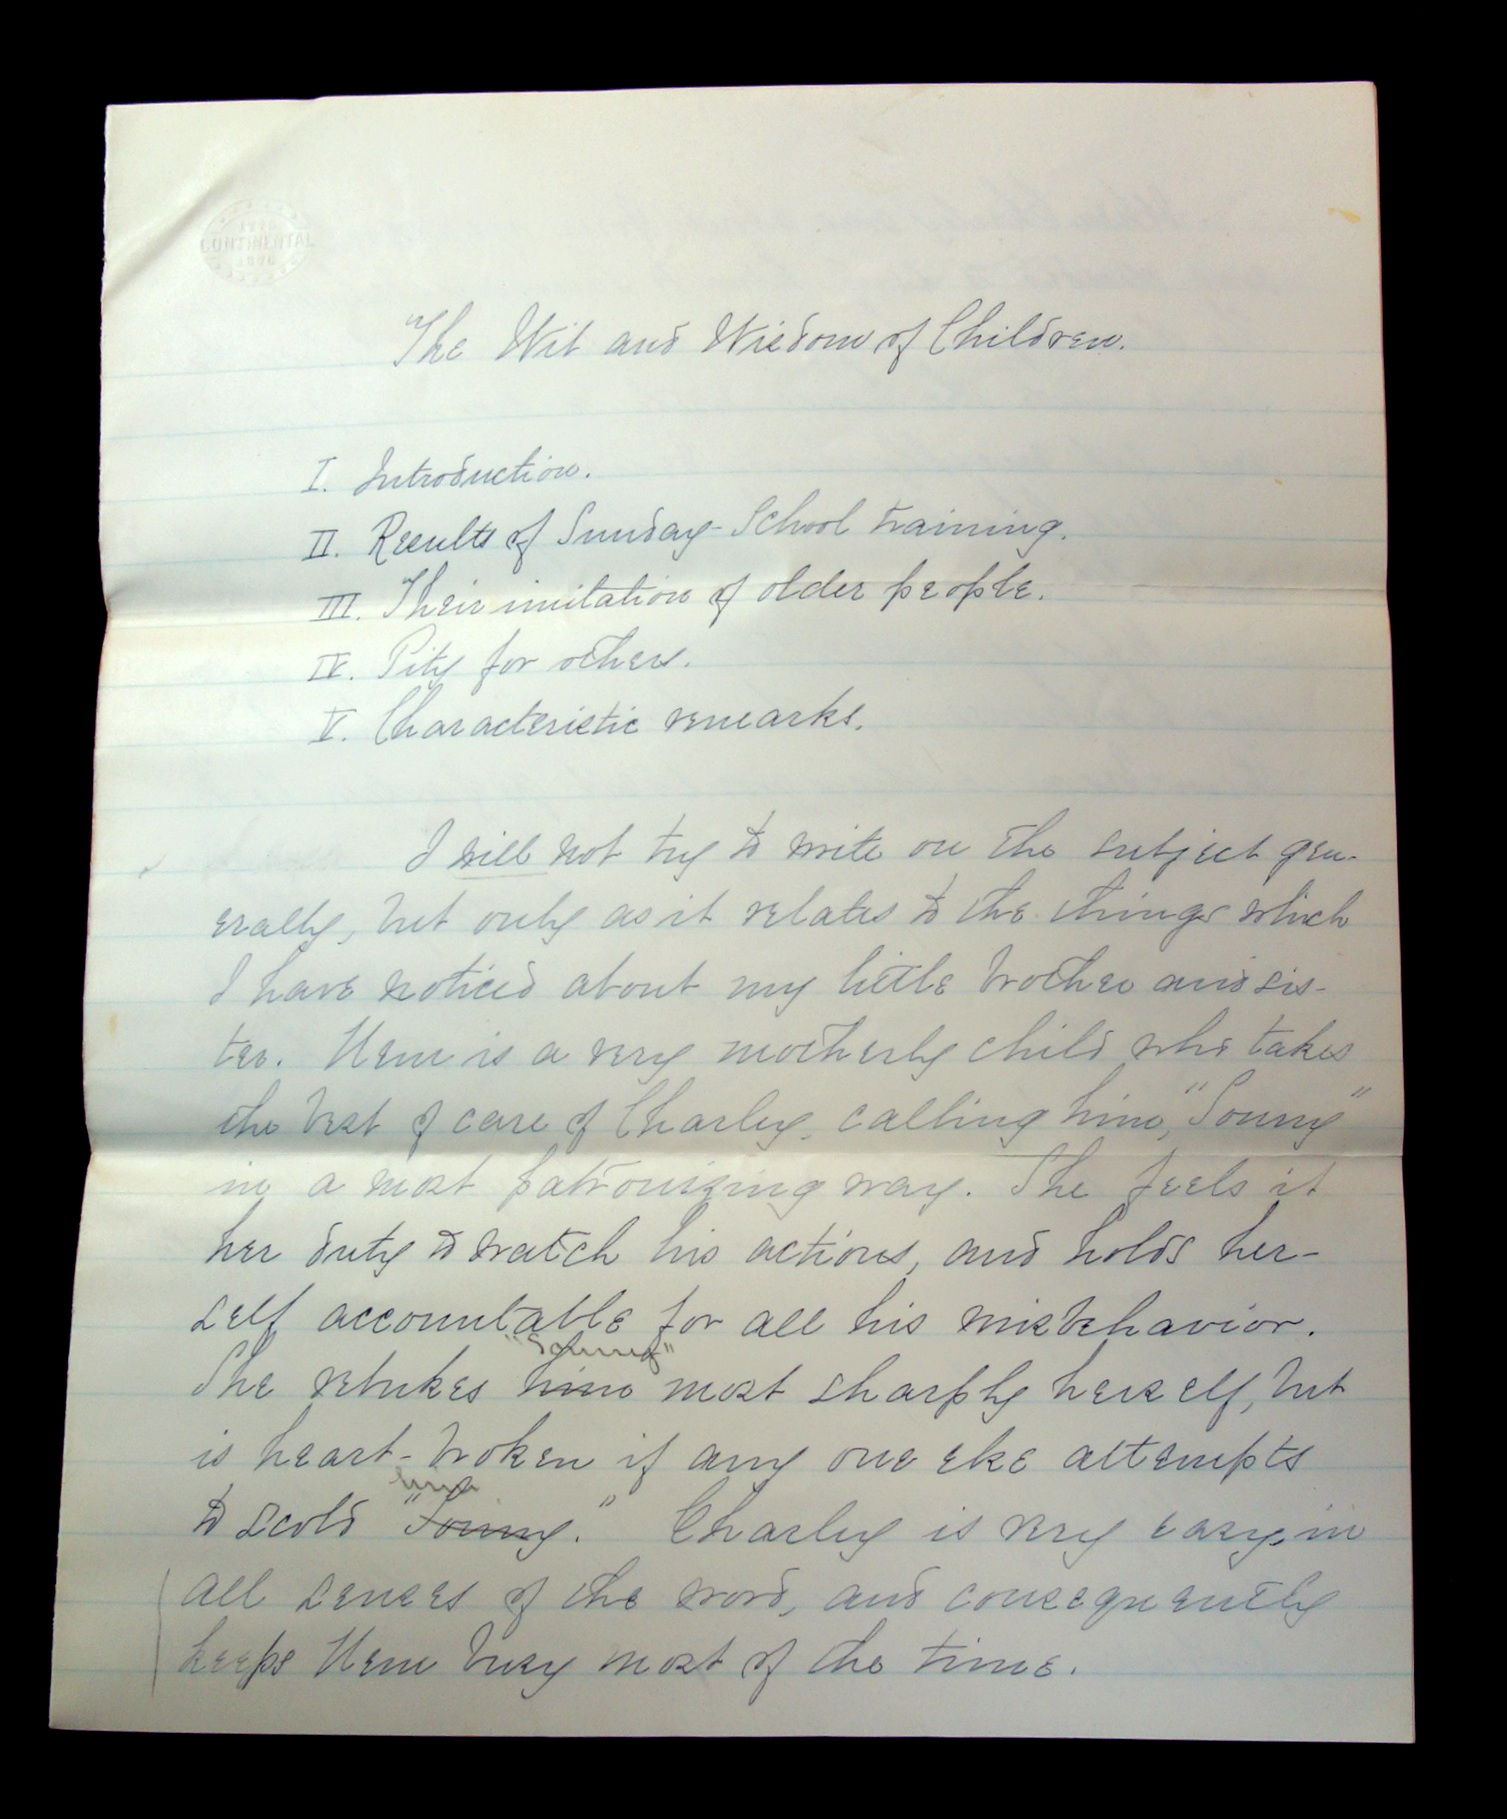 1776
CONTINENTAL
1876
The Wit and Wisdom of Children.
I. Introduction.
II. Results of Sunday-School training.
III. Their imitation of older people.
IV. Pity for others.
V. Characteristic remarks.
I will not try to write on the subject gen-
erally, but only as it relates to the things which
I have noticed about my little brother and sis-
ter. is a very motherly child who takes
the best of care of Charley, calling him, "Sonny"
in a most patronizing way. She feels it
her duty to watch his actions, and holds her-
self accountable for all his misbehavior.
"Sonny"
She rebukes him most sharply herself, but
is heart-broken if any one else attempts
him
to scold "Sonny." Charley is very easy, in
all senses of the word, and consequently
keeps busy most of the time.